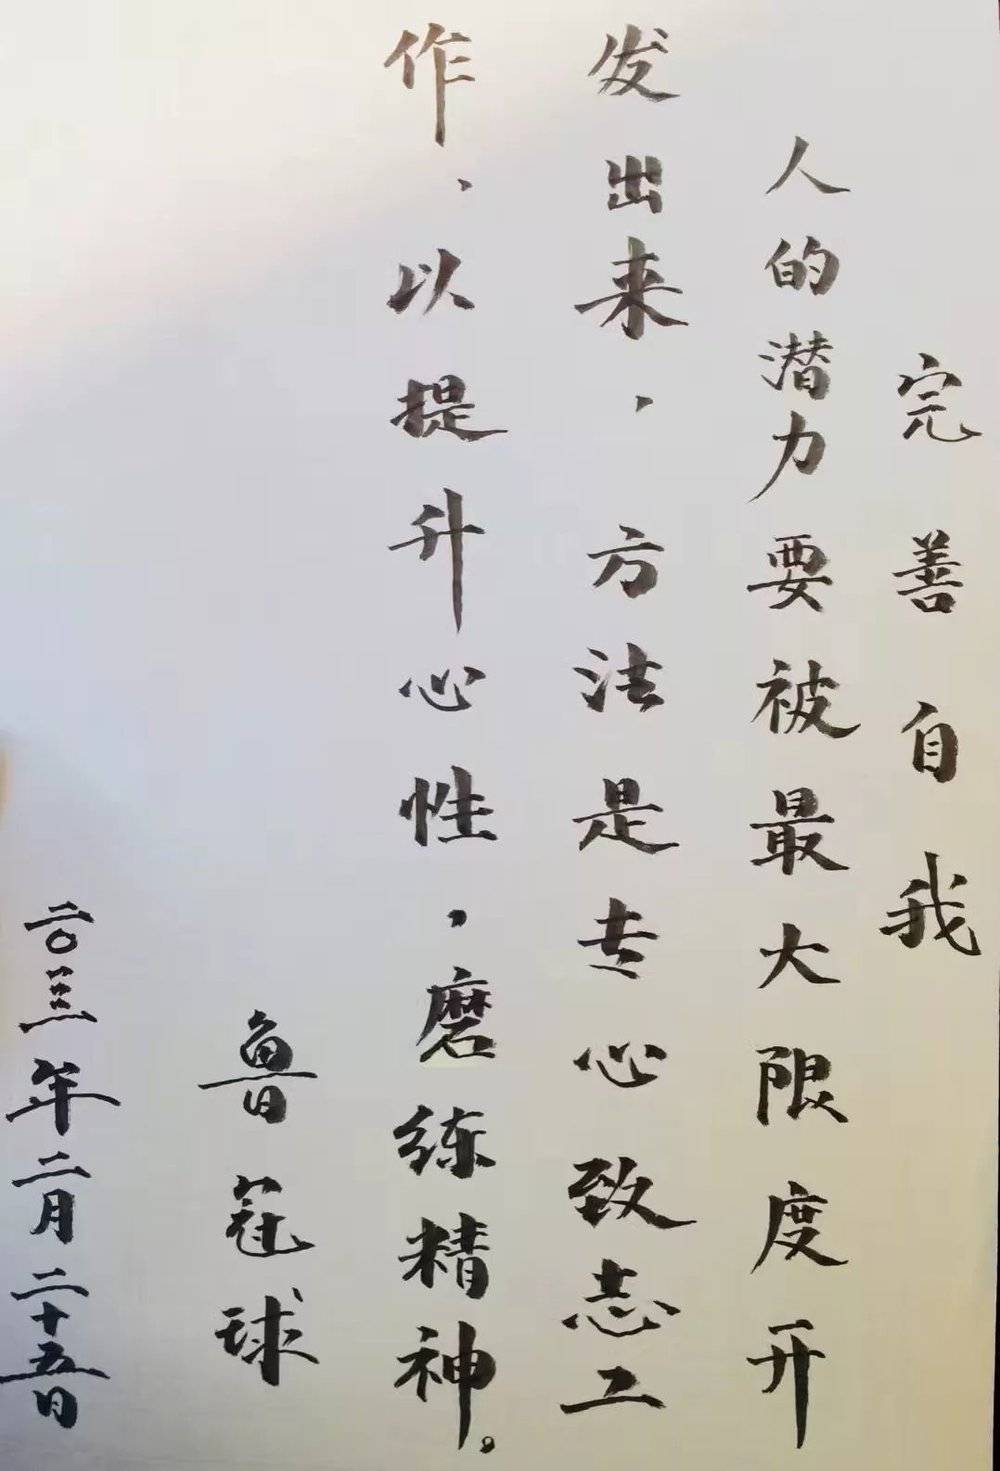 完善自我
人的潜力要被最大限度开
发出来，方法是专心致志工
作，以提升心性，磨练精神。
鲁冠球
二〇二三年二月二十五日